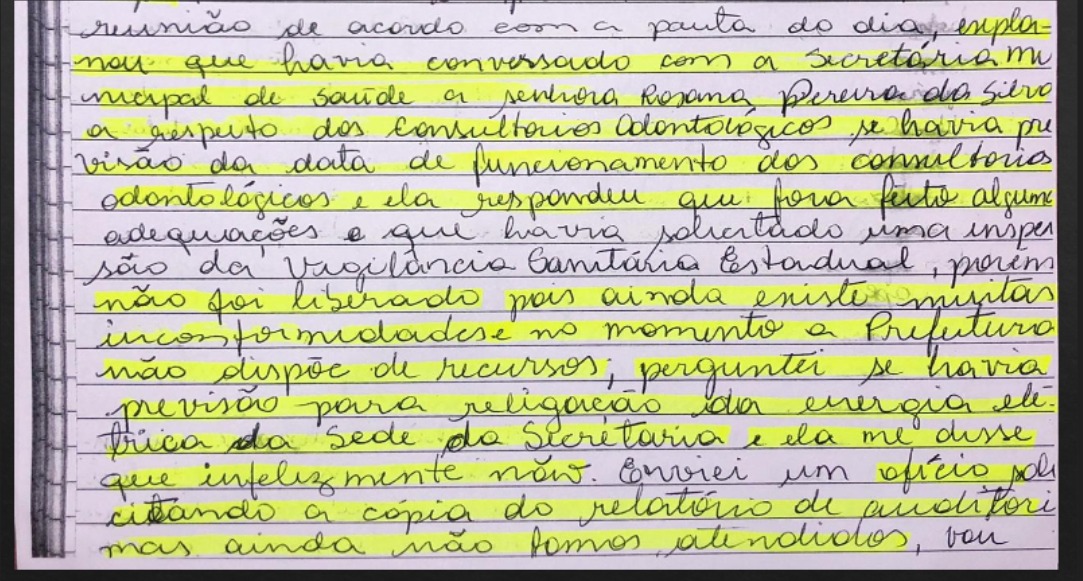 reunião de acordo com a pauta do dia, expla-
nou que havia conversado com a Secretária Mu
nicipal de Saúde a senhora Rosana Pereira da Silva
a respeito dos Consultórios Odontológicos se havia pre
visão da data de funcionamento dos consultorios
odontológicos e ela respondeu que fora feito alguma
adequações e que havia solicitado uma inspe
são da Vigilância Sanitária Estadual, porém
não foi liberado pois ainda existe muitas
inconformidades e no momento a Prefeitura
não dispõe de recursos; perguntei se havia
previsão para religação da energia elé-
trica da Sede da Secretaria e ela me disse
que infelizmente não. Enviei um ofício soli
citando a cópia do relatório de auditori
mas ainda não fomos atendidos, vou